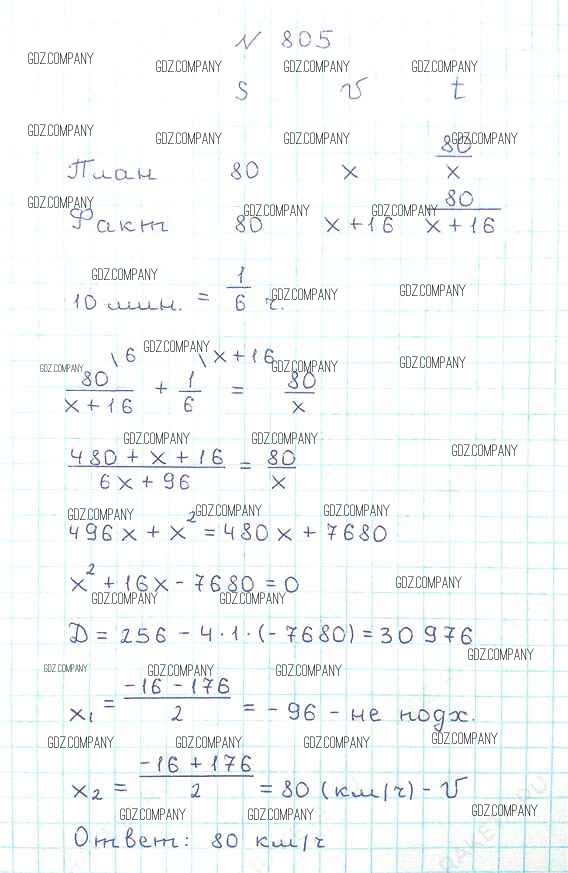 N 805
GDZ.COMPANY
GDZ.COMPANY GDZ.COMPANY GDZ.COMPANY
S V t
GDZ.COMPANY GDZ.COMPANY GDZ.COMPANY GDZ.COMPANY
План 80 x 80/x
GDZ.COMPANY GDZ.COMPANY GDZ.COMPANY
Факт 80 x + 16 80/(x + 16)
GDZ.COMPANY
10 мин. = 1/6 ч.
GDZ.COMPANY GDZ.COMPANY
GDZ.COMPANY GDZ.COMPANY GDZ.COMPANY GDZ.COMPANY
80/(x + 16) \6 + 1/6 \x + 16 = 80/x
GDZ.COMPANY GDZ.COMPANY GDZ.COMPANY
(480 + x + 16)/(6x + 96) = 80/x
GDZ.COMPANY GDZ.COMPANY GDZ.COMPANY
496x + x² = 480x + 7680
x² + 16x - 7680 = 0
GDZ.COMPANY
GDZ.COMPANY GDZ.COMPANY
D = 256 - 4·1·(-7680) = 30976
GDZ.COMPANY
GDZ.COMPANY GDZ.COMPANY GDZ.COMPANY
x₁ = (-16 - 176)/2 = -96 - не подх.
GDZ.COMPANY GDZ.COMPANY GDZ.COMPANY GDZ.COMPANY
x₂ = (-16 + 176)/2 = 80 (км/ч) - V
GDZ.COMPANY GDZ.COMPANY GDZ.COMPANY
Ответ: 80 км/ч